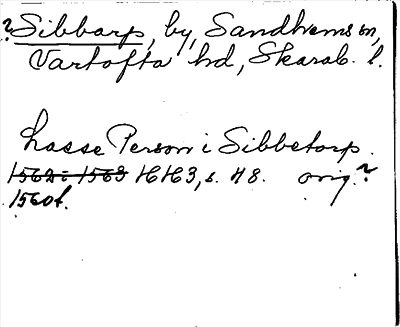 ? Sibbarp, by, Sandhems sn,
Vartofta hd, Skarab. l.
Lasse Person i Sibbetorp.
1562: 1563 HH3, s. 48. orig.?
1560f.